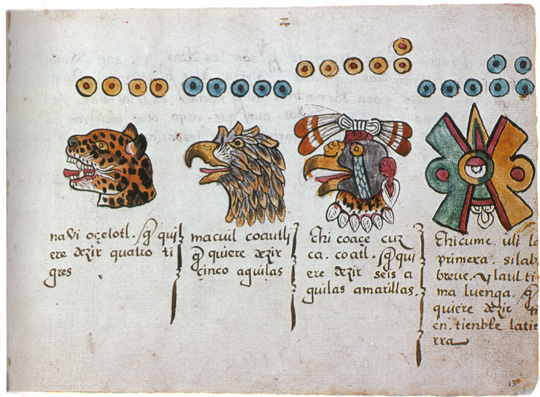 navi oçelotl. q̃ qui
ere dezir quatro ti
gres
macuil coautli
q̃ quiere dezir
çinco aguilas
chi coaçe cuz
ca. coatl. q̃ qui
ere dezir seis a
guilas amarillas.
chicume. uli la
primera. silab
breve. y la ulti
ma luenga. q̃
quiere dezir ti
en. tienble la tie
rra
13